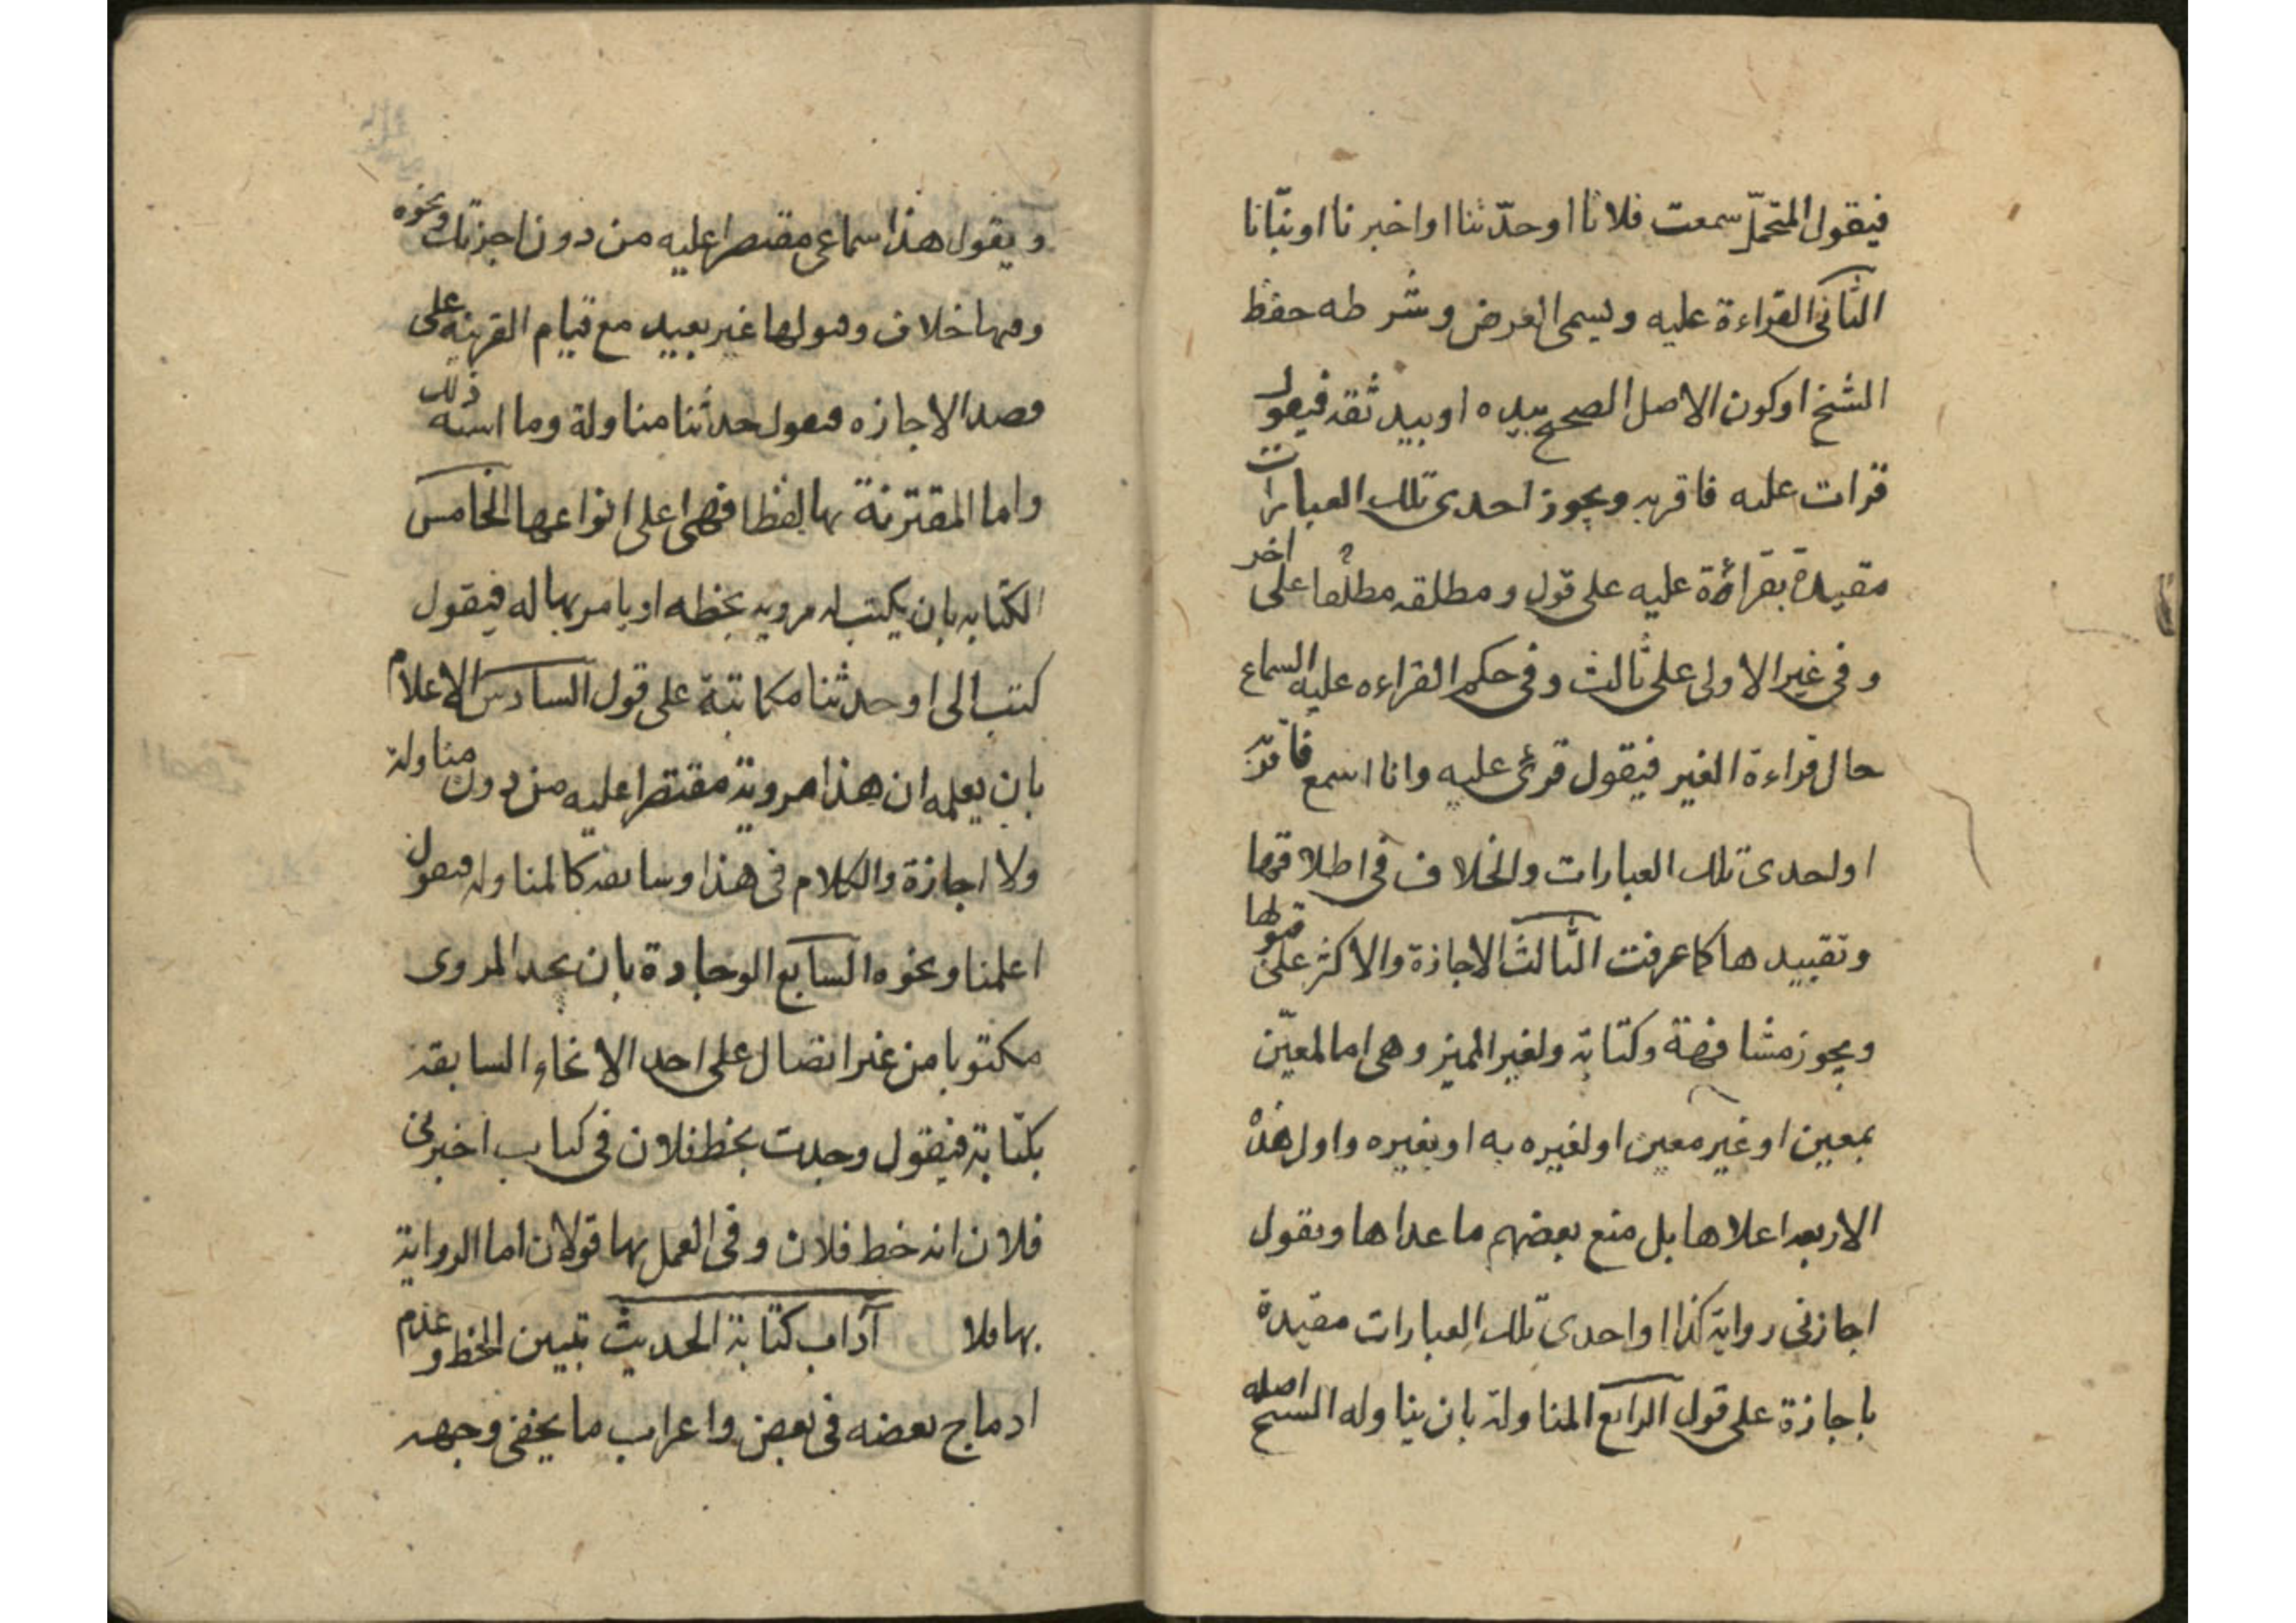 فيقول المتحمل سمعت فلانا او حدّثنا او اخبرنا او نبّانا
الثانى القراءة عليه ويسمى العرض وشرطه حفظ
الشيخ او كون الاصل الصحيح بيده او بيد ثقه فيقول
قرات عليه فاقر به ويجوز احدى تلك العبارات
مقيدة بقراءة عليه على قول ومطلقه مطلقا على اخر
وفى غير الاولى على ثالث وفى حكم القراءه عليه السماع
حال قراءة الغير فيقول قرئ عليه وانا اسمع فاقرّ به
او احدى تلك العبارات والخلاف فى اطلاقها
وتقييدها كما عرفت الثالث الاجازة والاكثر على قبولها
ويجوز مشافهة وكتابة ولغير المميز وهى اما لمعيّن
بمعين او غير معين او لغيره به او بغيره واول هذه
الاربعه اعلاها بل منع بعضهم ما عداها ويقول
اجازنى رواية كذا او احدى تلك العبارات مقيدة
باجازة على قول الرابع المناولة بان يناوله الشيخ اصله
ويقول هذا سماعى مقتصرا عليه من دون اجزتك ونحوه
وفيها خلاف وقبولها غير بعيد مع قيام القرينه على
قصد الاجازه فيقول حدثنا مناولة وما اشبه ذلك
واما المقترنة بها لفظا فهى اعلى انواعها الخامس
الكتابه بان يكتب له مرويه بخطه او يامر بها له فيقول
كتب الى او حدثنا مكاتبة على قول السادس الاعلام
بان يعلمه ان هذا مرويه مقتصرا عليه من دون مناولة
ولا اجازة والكلام فى هذا وسابقه كالمناوله فيقول
اعلمنا ونحوه السابع الوجادة بان يجد المروى
مكتوبا من غير اتصال على احد الانحاء السابقه
بكتابة فيقول وجدت بخط فلان فى كتاب اخبرنى
فلان انه خط فلان وفى العمل بها قولان اما الرواية
بها فلا آداب كتابة الحديث تبيين الخط وعدم
ادماج بعضه فى بعض واعراب ما يخفى وجهه